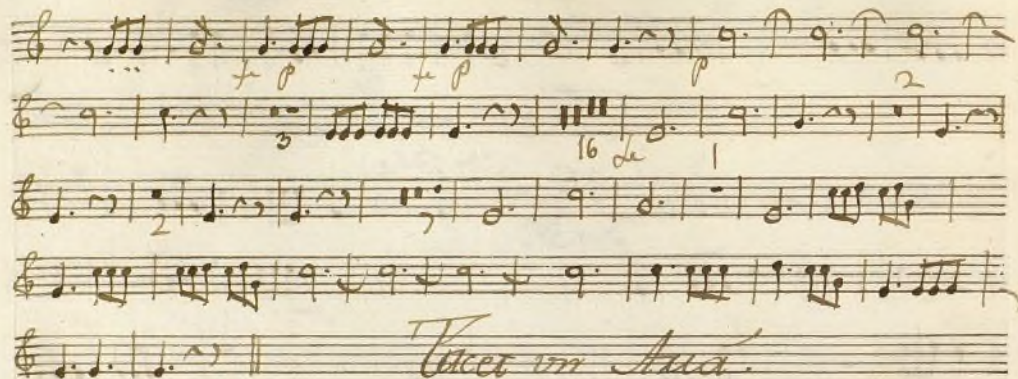 fe p fe p p 2
3 16 fe 1
2 7
Tacet un Aria.